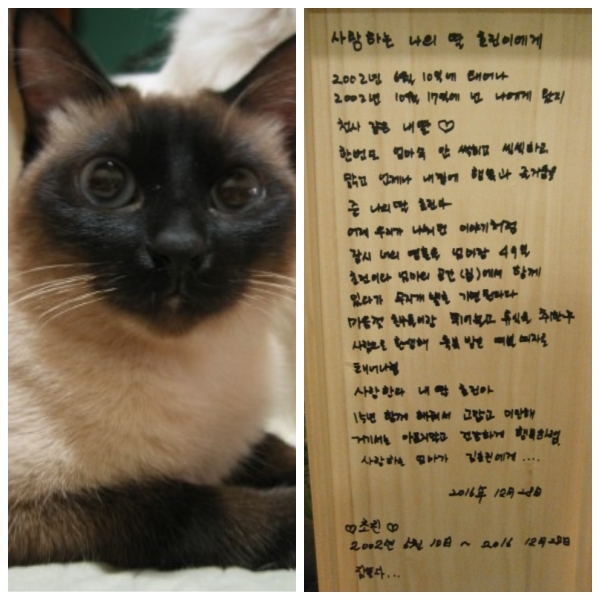 사랑하는 나의 딸 초린이에게
2002년 6월 10일에 태어나
2002년 10월 17일에 넌 나에게 왔지
천사 같은 내 딸 ♡
한번도 엄마속 안 썩히고 씩씩하고
맑고 언제나 내곁에 행복과 즐거움을
준 나의 딸 초린아
어제 우리가 나눴던 이야기처럼
잠시 너의 영혼은 엄마랑 49일
초린이와 엄마의 공간(집)에서 함께
있다가 무지개 별로 가면 된단다
사람으로 환생해 축복 받은 예쁜 여자로
태어나렴
사랑한다 내 딸 초린아
15년 함께 해줘서 고맙고 미안해
거기서는 아프지말고 건강하게 행복하렴
사랑하는 엄마가 초린에게....
2016年 12月 28日
♡초린♡
2002년 6월 10日 ~ 2016 12月 28日
잠들다...